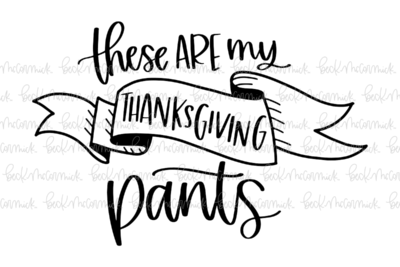 these ARE my
THANKSGIVING
pants